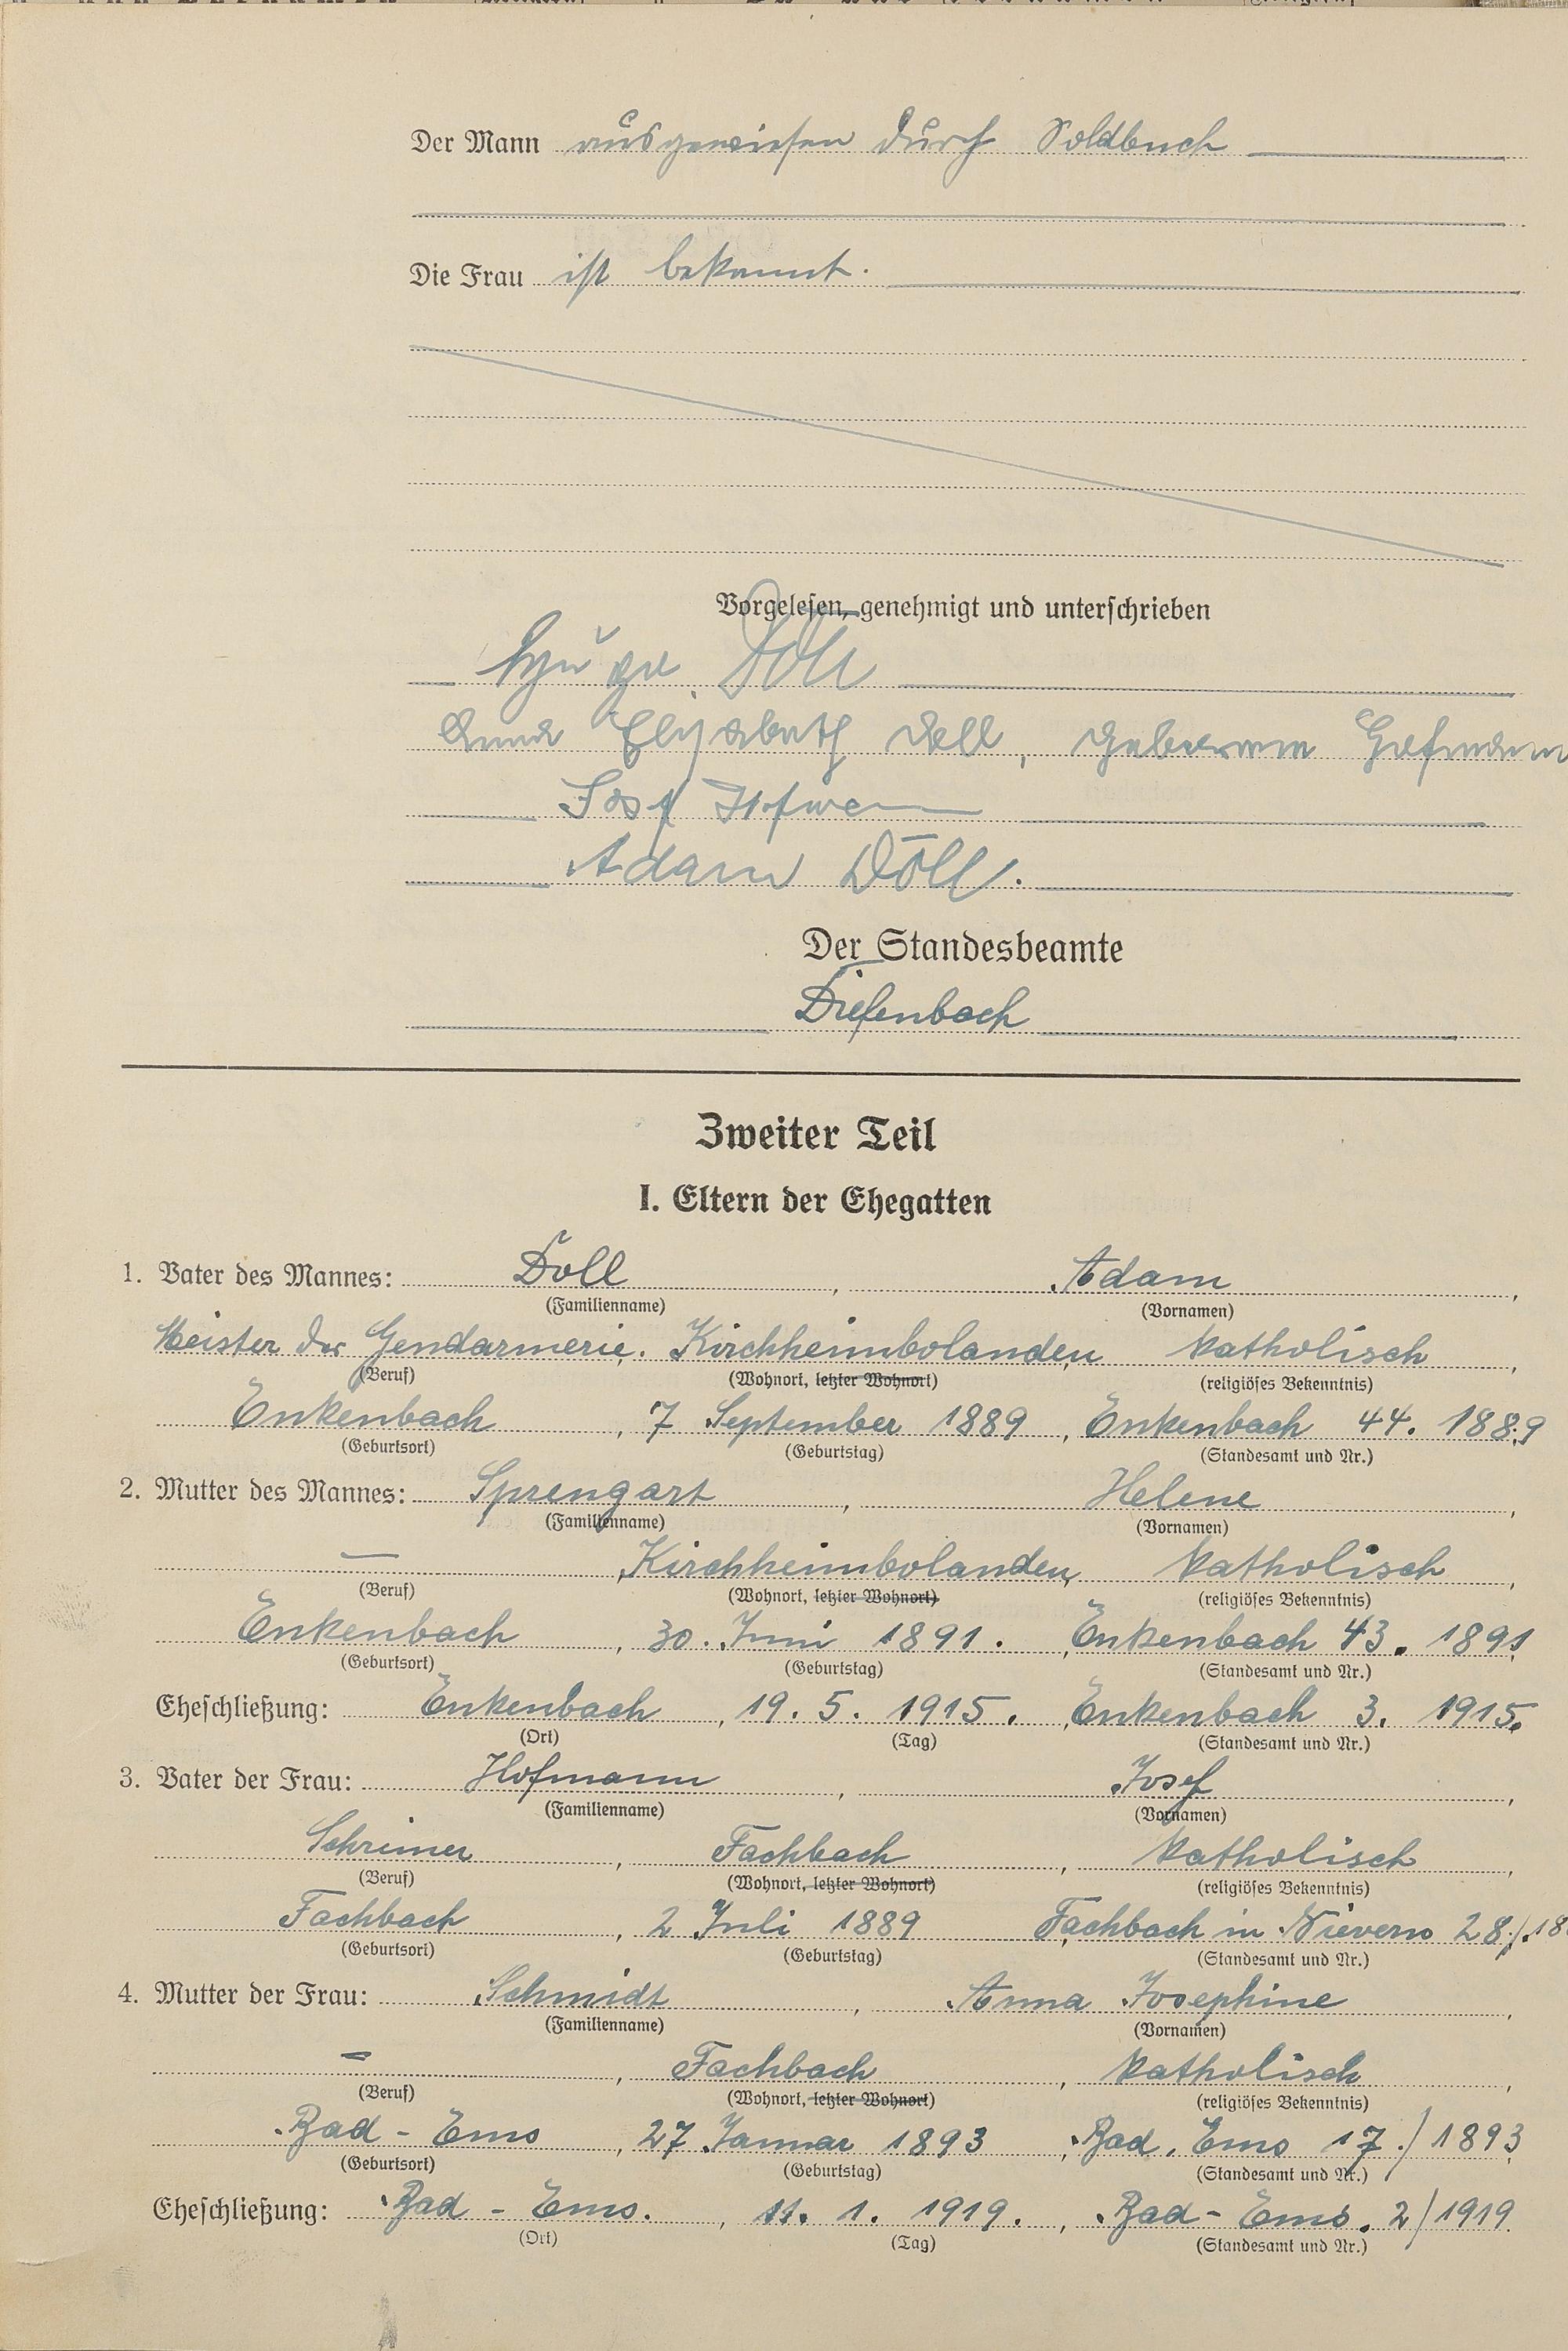 Der Mann ausgewiesen durch Soldbuch
Die Frau ist bekannt.
Vorgelesen, genehmigt und unterschrieben
Döll
Anna Elisabeth Döll, geborene Hofmann
Josef Hofmann
Adam Döll.
Der Standesbeamte
Diefenbach
Zweiter Teil
I. Eltern der Ehegatten
1. Vater des Mannes: Döll, Adam,
(Familienname) (Vornamen)
Meister der Gendarmerie. Kirchheimbolanden katholisch,
(Beruf) (Wohnort, letzter Wohnort) (religiöses Bekenntnis)
Enkenbach, 7 September 1889, Enkenbach 44. 1889
(Geburtsort) (Geburtstag) (Standesamt und Nr.)
2. Mutter des Mannes: Sprengart, Helene,
(Familienname) (Vornamen)
— , Kirchheimbolanden, katholisch,
(Beruf) (Wohnort, letzter Wohnort) (religiöses Bekenntnis)
Enkenbach, 30. Juni 1891. Enkenbach 43. 1891
(Geburtsort) (Geburtstag) (Standesamt und Nr.)
Eheschließung: Enkenbach, 19. 5. 1915., Enkenbach 3. 1915.
(Ort) (Tag) (Standesamt und Nr.)
3. Vater der Frau: Hofmann, Josef,
(Familienname) (Vornamen)
Schreiner, Fachbach, katholisch,
(Beruf) (Wohnort, letzter Wohnort) (religiöses Bekenntnis)
Fachbach, 2 Juli 1889, Fachbach in Nievern 28./.18
(Geburtsort) (Geburtstag) (Standesamt und Nr.)
4. Mutter der Frau: Schmidt, Anna Josephine,
(Familienname) (Vornamen)
— , Fachbach, katholisch,
(Beruf) (Wohnort, letzter Wohnort) (religiöses Bekenntnis)
Bad - Ems, 27 Januar 1893, Bad. Ems 17./1893
(Geburtsort) (Geburtstag) (Standesamt und Nr.)
Eheschließung: Bad - Ems., 11. 1. 1919., Bad - Ems. 2/1919.
(Ort) (Tag) (Standesamt und Nr.)